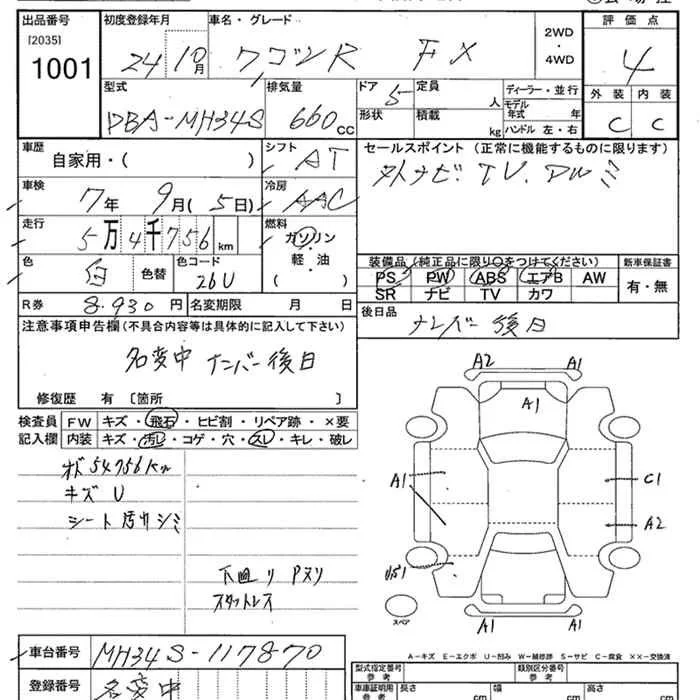 出品番号 初度登録年月 車名・グレード 2WD・4WD 評価点
[2035] 1001 24 10月 ワゴンR FX 4
外装 内装
C C
型式 排気量 ドア 定員 ディーラー・並行
DBA-MH34S 660cc 5 人 モデル年式 年
形状 積載 kg ハンドル 左・右
車歴 自家用・( ) シフト AT
セールスポイント (正常に機能するものに限ります)
TV、アルミ
車検 7年 9月(5日) 冷房 AAC
走行 5万4千756km 燃料 ガソリン・軽油・( )
色 白 色替 色コード 26U
装備品(純正品に限り○をつけてください) 新車保証書
PS PW ABS エアB AW 有・無
SR ナビ TV カワ
R券 8.930円 名変期限 月 日
後日品 ナンバー後日
注意事項申告欄(不具合内容等は具体的に記入して下さい)
名変中 ナンバー後日
修復歴 有 〔箇所 〕
検査員 FW キズ・飛石・ヒビ割・リペア跡・×要
記入欄 内装 キズ・汚れ・コゲ・穴・スレ・キレ・破レ
54756km
キズ U
シート汚れシミ
下回り Pヌリ
スタットレス
A2 A1
A1
A1 C1
A2
A1 A1
スペア
A-キズ E-エクボ U-凹み W-補修跡 S-サビ C-腐食 ××-交換済
車台番号 MH34S-117870
型式指定番号 参考 類別区分番号 参考
登録番号 名変中
車庫証明用 参考 長さ cm 幅 cm 高さ cm